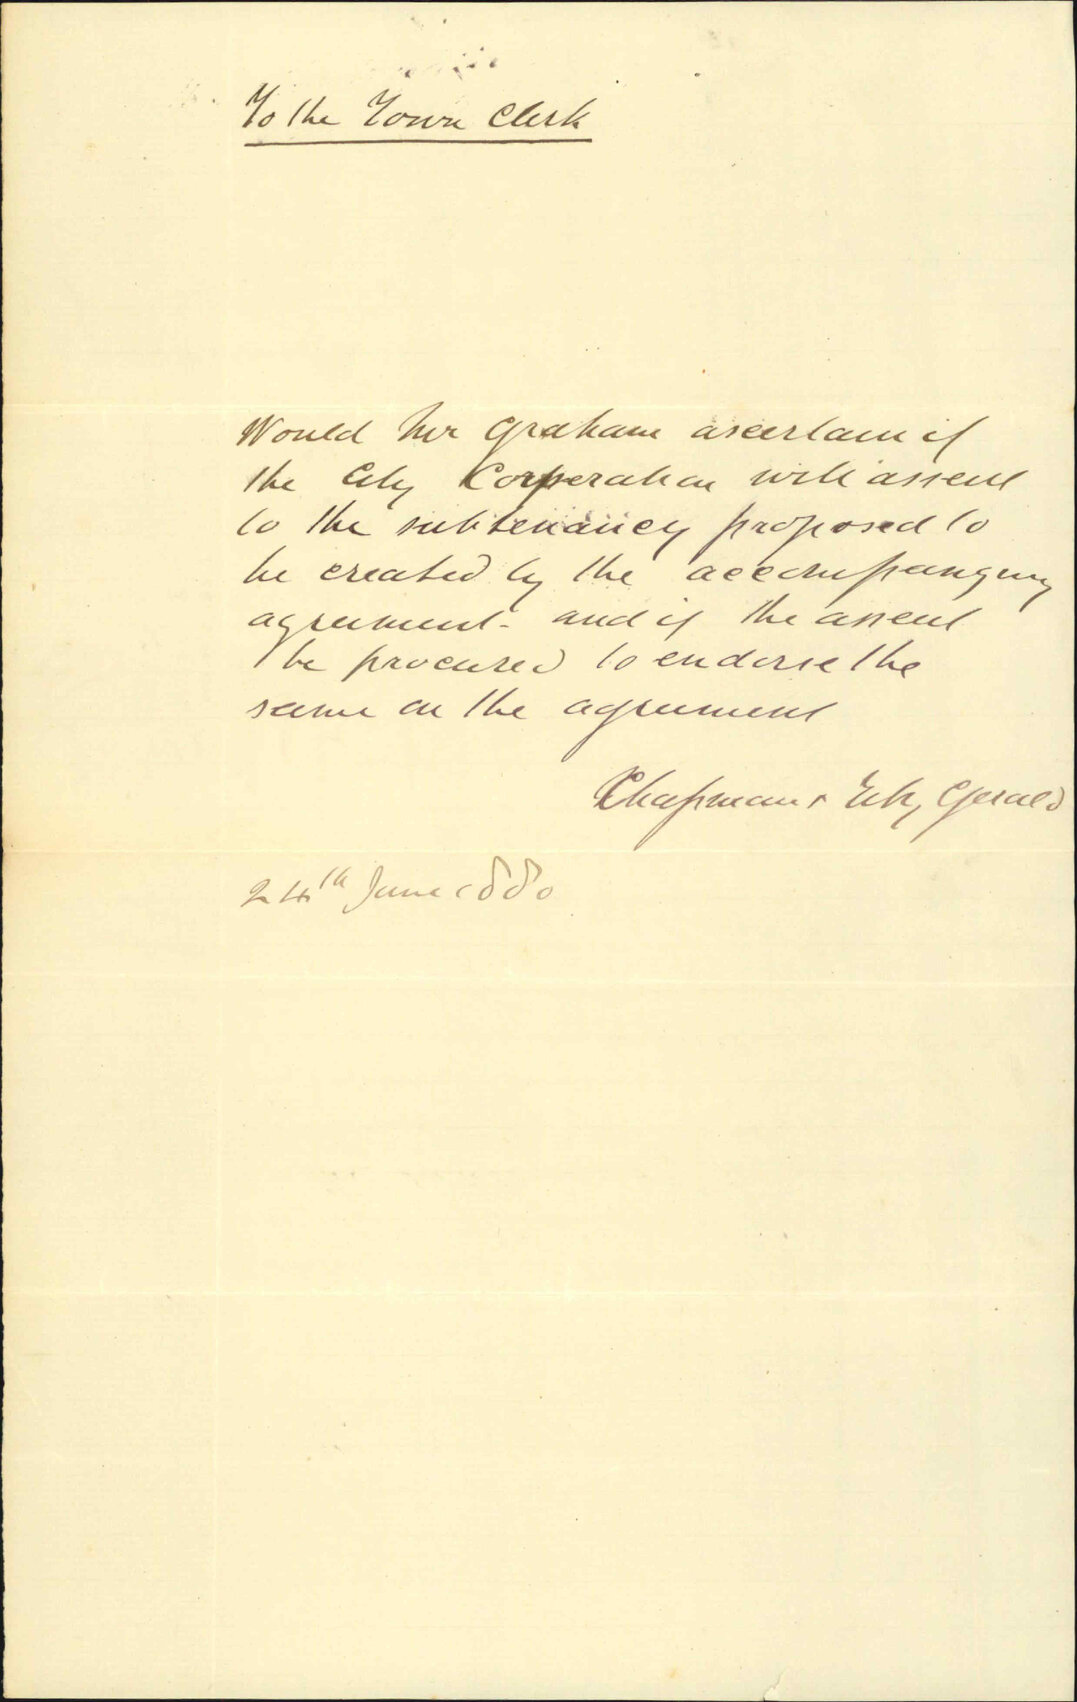 To the Town Clerk
Would Mr Graham ascertain if
the City Corporation will assent
to the subtenancy proposed to
be created by the accompanying
agreement - and if the assent
be procured to endorse the
same on the agreement
Chapman & Fitz Gerald
24th June 1880